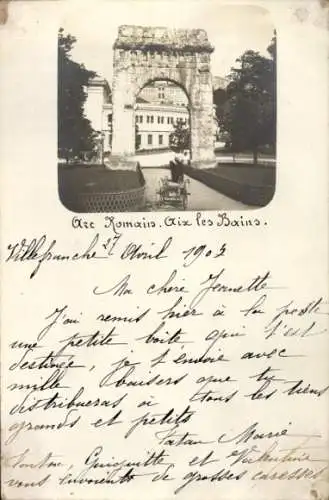 Arc Romain. Aix les Bains.
Villefranche 27 Avril 1902
Ma chère Jeannette
J'ai remis hier à la poste
une petite boite qui t'est
destinée, je t'envoie avec
mille baisers que tu
distribueras à tous les tiens
grands et petits
Tatan Marie
Guiguitte et Valentine
vous envoient de grosses caresses